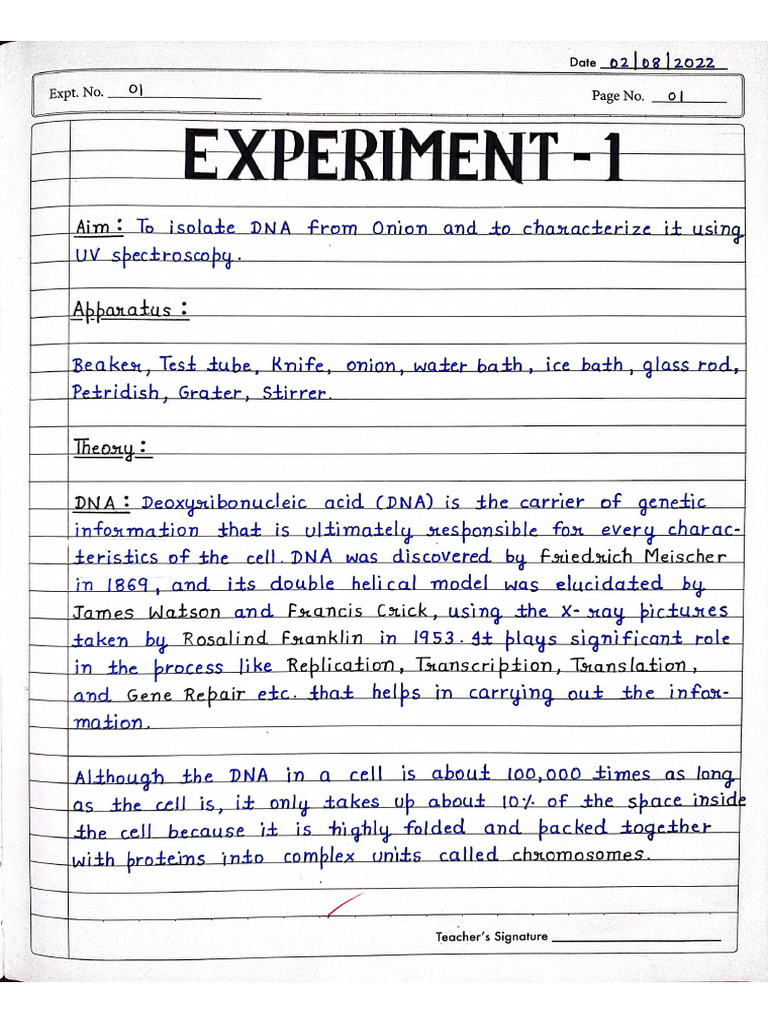 Date 02/08/2022
Expt. No. 01
Page No. 01
EXPERIMENT - 1
Aim : To isolate DNA from Onion and to characterize it using
UV spectroscopy.
Apparatus :
Beaker, Test tube, Knife, onion, water bath, ice bath, glass rod,
Petridish, Grater, Stirrer.
Theory :
DNA : Deoxyribonucleic acid (DNA) is the carrier of genetic
information that is ultimately responsible for every charac-
teristics of the cell. DNA was discovered by Friedrich Meischer
in 1869, and its double helical model was elucidated by
James Watson and Francis Crick, using the X-ray pictures
taken by Rosalind Franklin in 1953. It plays significant role
in the process like Replication, Transcription, Translation,
and Gene Repair etc. that helps in carrying out the infor-
mation.
Although the DNA in a cell is about 100,000 times as long
as the cell is, it only takes up about 10% of the space inside
the cell because it is highly folded and packed together
with proteins into complex units called chromosomes.
Teacher's Signature